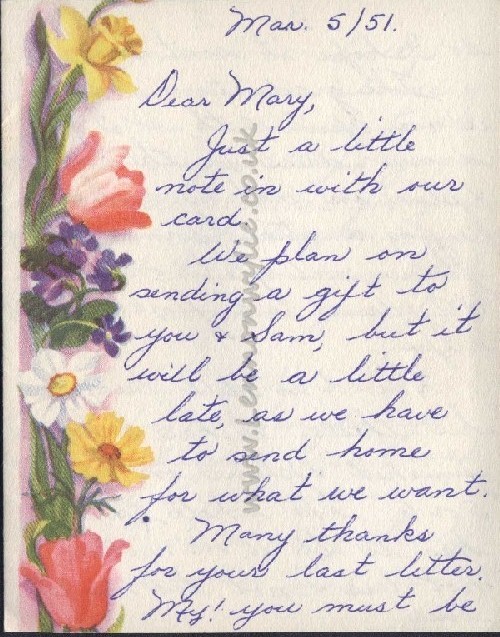 Mar. 5/51.
Dear Mary,
Just a little
note in with our
card.
We plan on
sending a gift to
you & Sam, but it
will be a little
late, as we have
to send home
for what we want.
Many thanks
for your last letter.
My! you must be